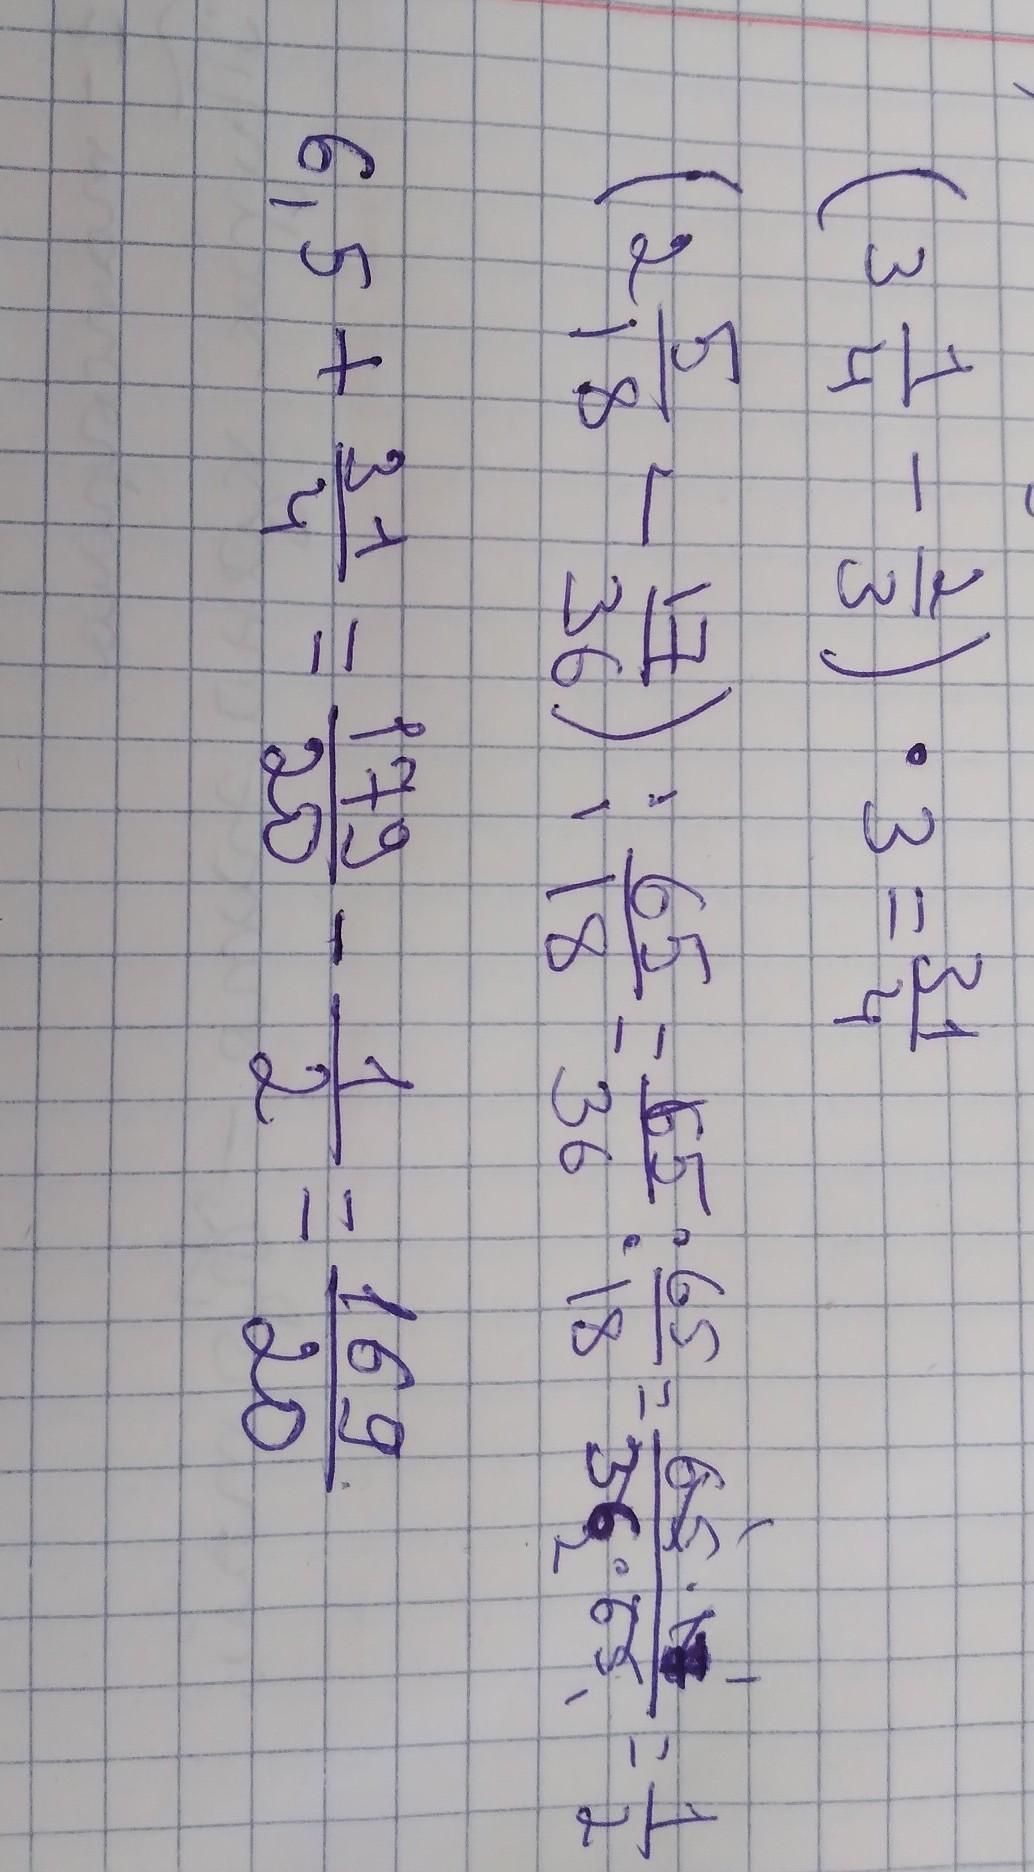 (3 1/4 - 2/3) · 3 = 31/4
(2 5/18 - 17/36) : 65/18 = 65/36 : 65/18 = 65·18/36·65 = 1/2
6,5 + 31/4 = 179/20 - 1/2 = 169/20